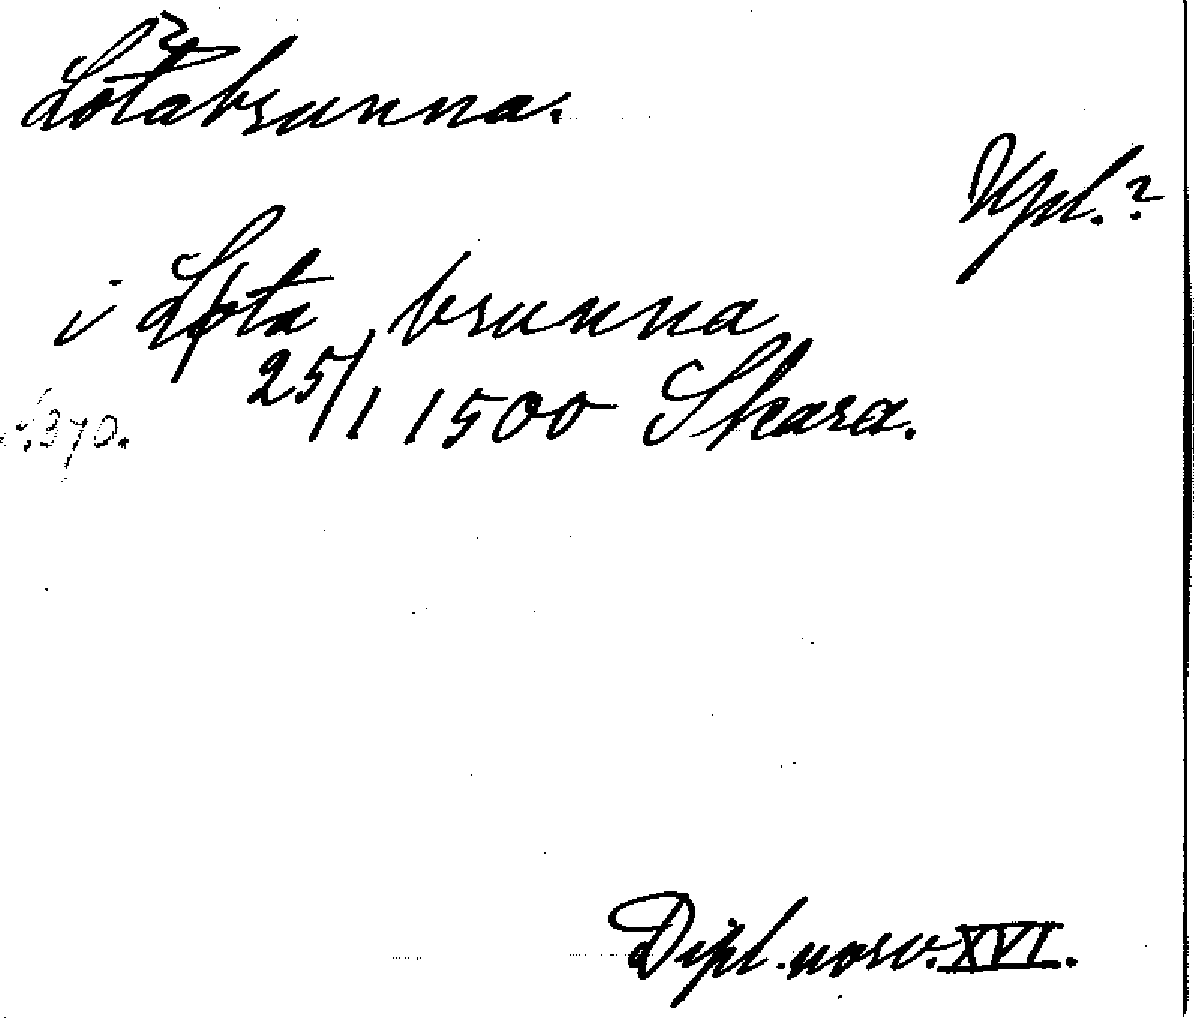 ?
Lötabrunna.
Upl.?
i Løta brunna
25/1 1500 Skara.
s. 370.
Dipl. norv. XVI.